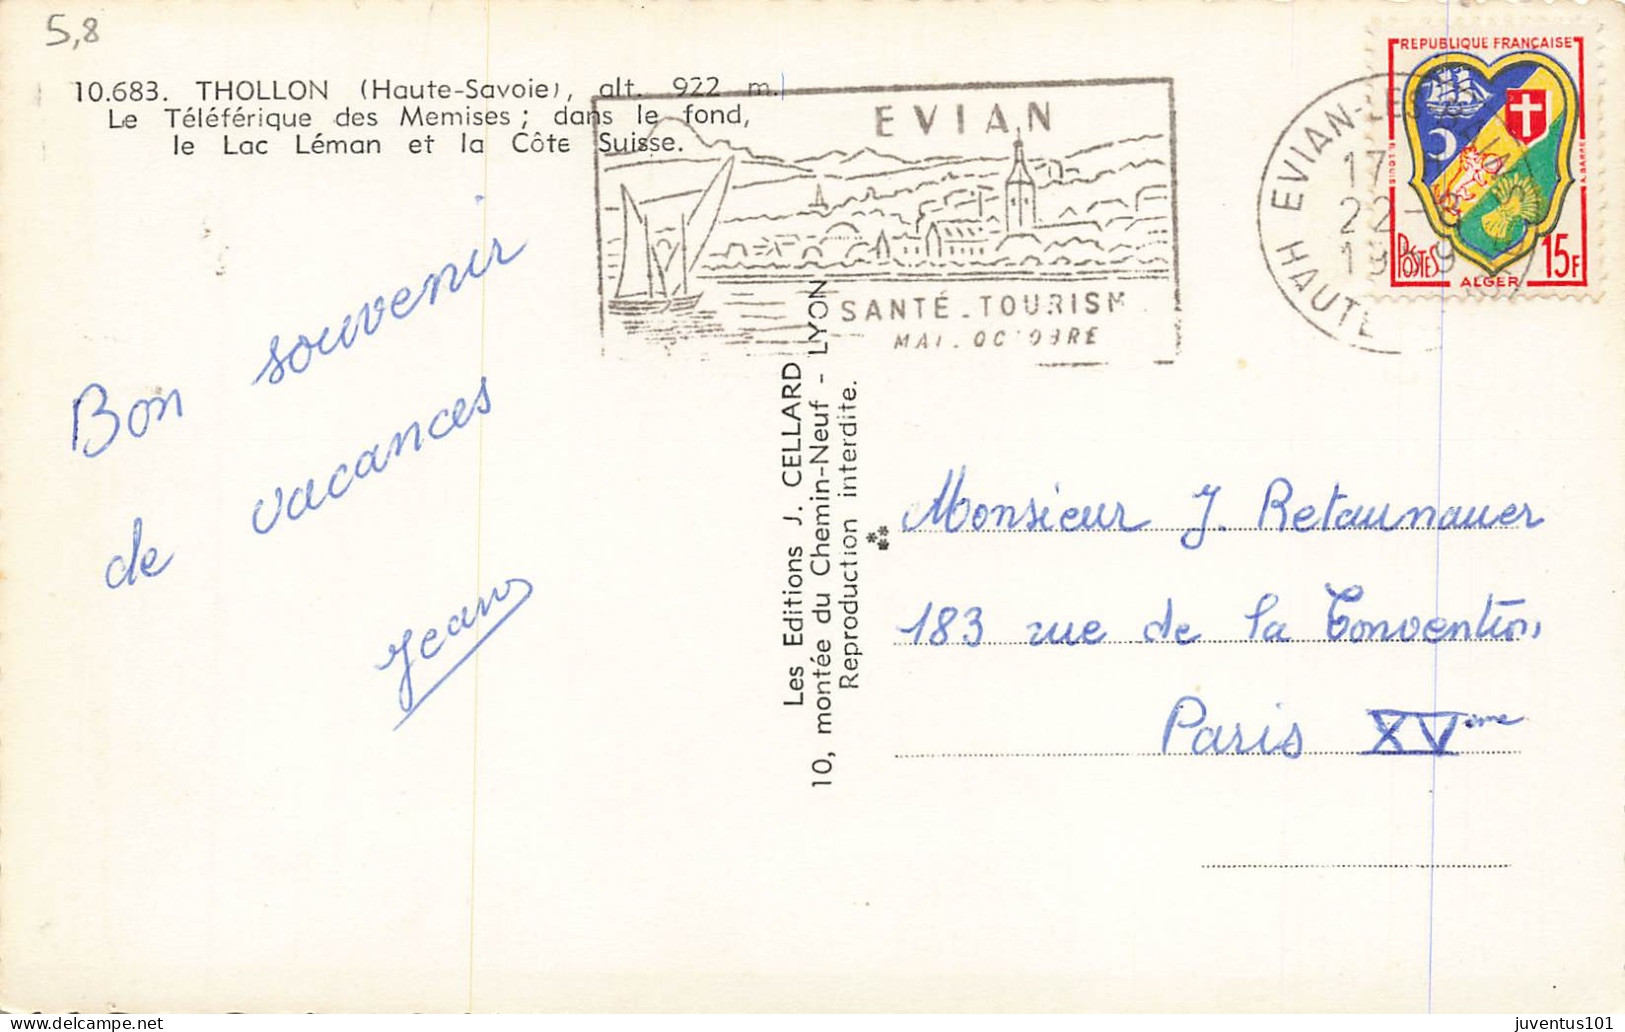 5,8
10.683. THOLLON (Haute-Savoie), alt. 922 m.
Le Téléférique des Memises ; dans le fond,
le Lac Léman et la Côte Suisse.
EVIAN
SANTÉ_TOURISM
MAI_OCTOBRE
EVIAN-LES
17
22
HAUTE
REPUBLIQUE FRANÇAISE
POSTES
15F
ALGER
Bon souvenir
de vacances
Jean
Les Editions J. CELLARD
10, montée du Chemin-Neuf - LYON
Reproduction interdite.
Monsieur J. Retaunauer
183 rue de la Convention
Paris XVème
juventus101
delcampe.net